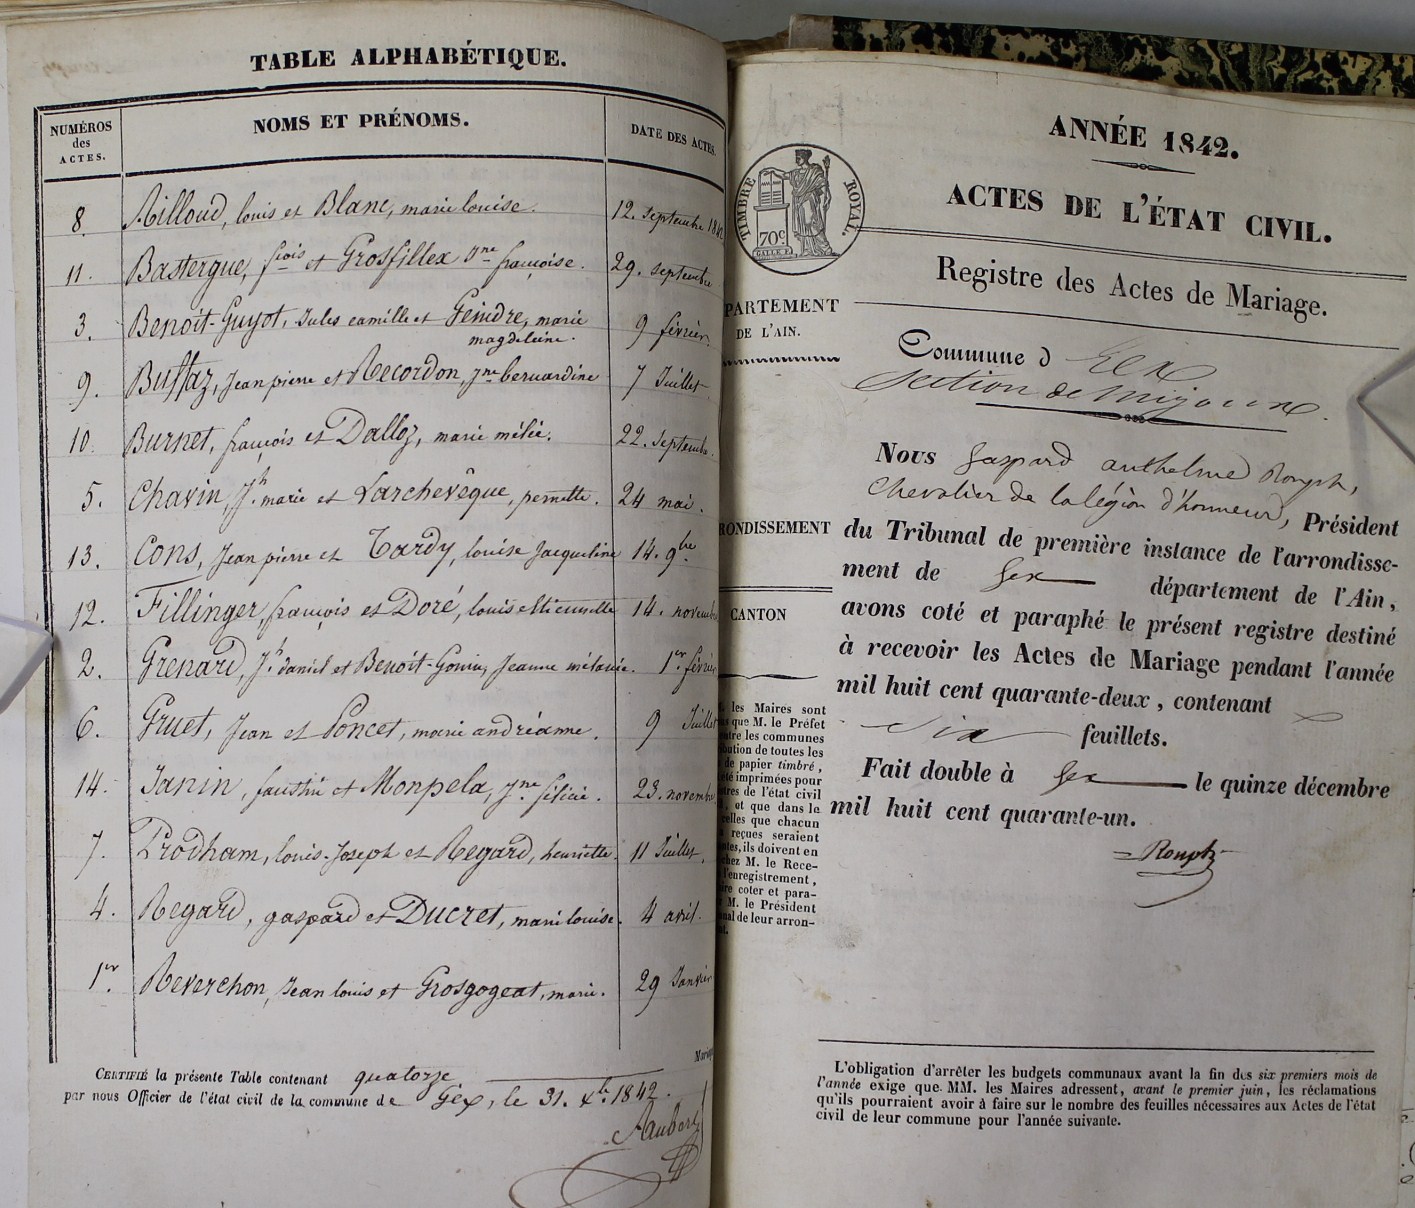 TABLE ALPHABÉTIQUE.
NUMÉROS
des
ACTES.
NOMS ET PRÉNOMS.
DATE DES ACTES.
8. Ailloud, louis et Blanc, marie louise. 12. septembre 184
11. Bastergue, fçois et Grosfillex Jne françoise. 29. septembre
3. Benoit-Guyot, Jules camille et Geindre, marie 9 février.
magdeleine.
9. Buffaz, Jean pierre et Recordon, Jne bernardine 7 Juillet
10. Burnet, françois et Dalloz, marie mélie. 22. septembre.
5. Chavin, Jh. marie et Larchevêque, pernette. 24 mai.
13. Cons, Jean pierre et Tardy, louise Jacqueline 14. 9bre
12. Fillinger, françois et Doré, louise Etiennette 14. novemb
2. Grenard, Jh daniel et Benoit-Gonin, Jeanne mélanie. 1er. février
6. Gruet, Jean et Poncet, marie andréanne. 9 Juillet
14. Janin, faustin et Monpela, Jne félicie. 23. novemb
7. Prodham, louis-Joseph et Regard, henriette. 11 Juillet.
4. Regard, gaspard et Ducret, marie louise. 4 avril.
1er. Reverchon, Jean louis et Grosgogeat, marie. 29 Janvier
CERTIFIÉ la présente Table contenant quatorze
par nous Officier de l'état civil de la commune de Gex, le 31. Xbre 1842.
Aubert
TIMBRE ROYAL.
70c
ANNÉE 1842.
ACTES DE L'ÉTAT CIVIL.
Registre des Actes de Mariage.
PARTEMENT
DE L'AIN.
Commune d Gex
Section de mijoux.
RONDISSEMENT
CANTON
les Maires sont
que M. le Préfet
les communes
de toutes les
de papier timbré,
imprimées pour
de l'état civil
, et que dans le
celles que chacun
reçues seraient
ils doivent en
chez M. le Rece-
l'enregistrement,
coter et para-
M. le Président
de leur arron-
Nous Gaspard anthelme Rouph,
Chevalier de la légion d'honneur, Président
du Tribunal de première instance de l'arrondisse-
ment de Gex département de l'Ain,
avons coté et paraphé le présent registre destiné
à recevoir les Actes de Mariage pendant l'année
mil huit cent quarante-deux, contenant
Six feuillets.
Fait double à Gex le quinze décembre
mil huit cent quarante-un.
L'obligation d'arrêter les budgets communaux avant la fin des six premiers mois de
l'année exige que MM. les Maires adressent, avant le premier juin, les réclamations
qu'ils pourraient avoir à faire sur le nombre des feuilles nécessaires aux Actes de l'état
civil de leur commune pour l'année suivante.